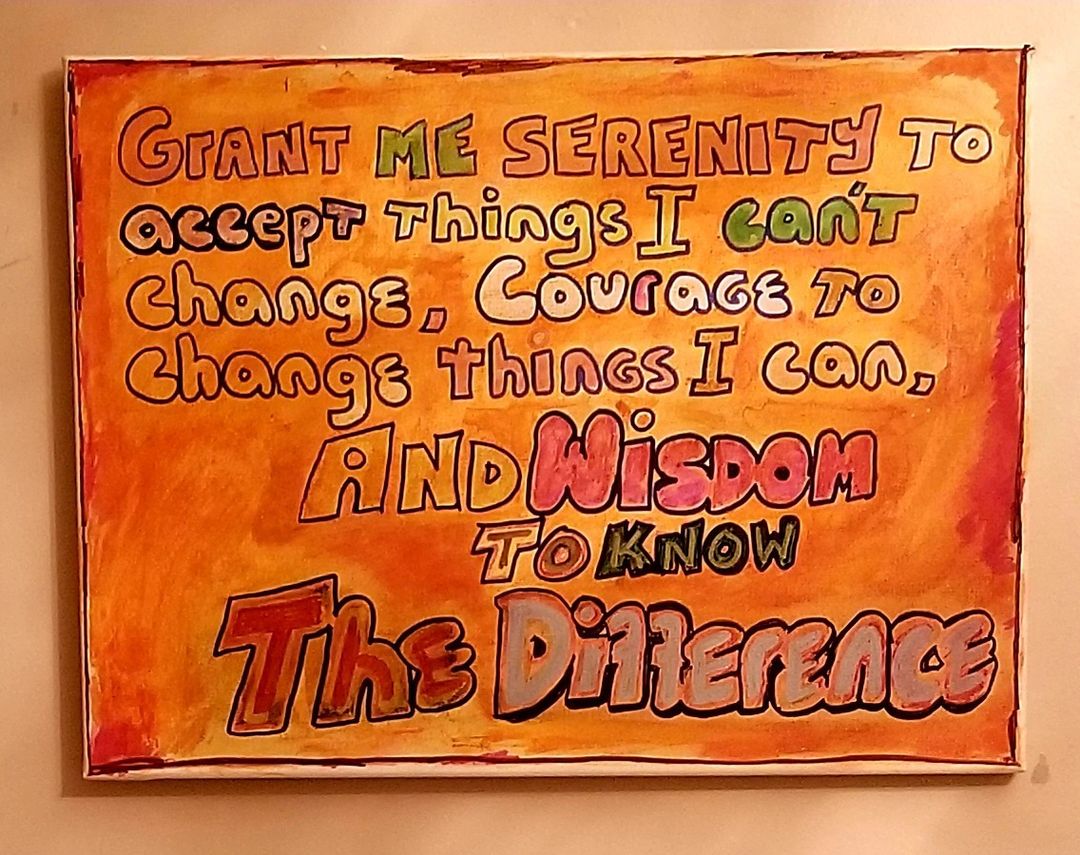 GrANT ME SERENITY TO
accept Things I can't
change, Courage to
change things I can,
AND WISDOM
TO KNOW
The Difference